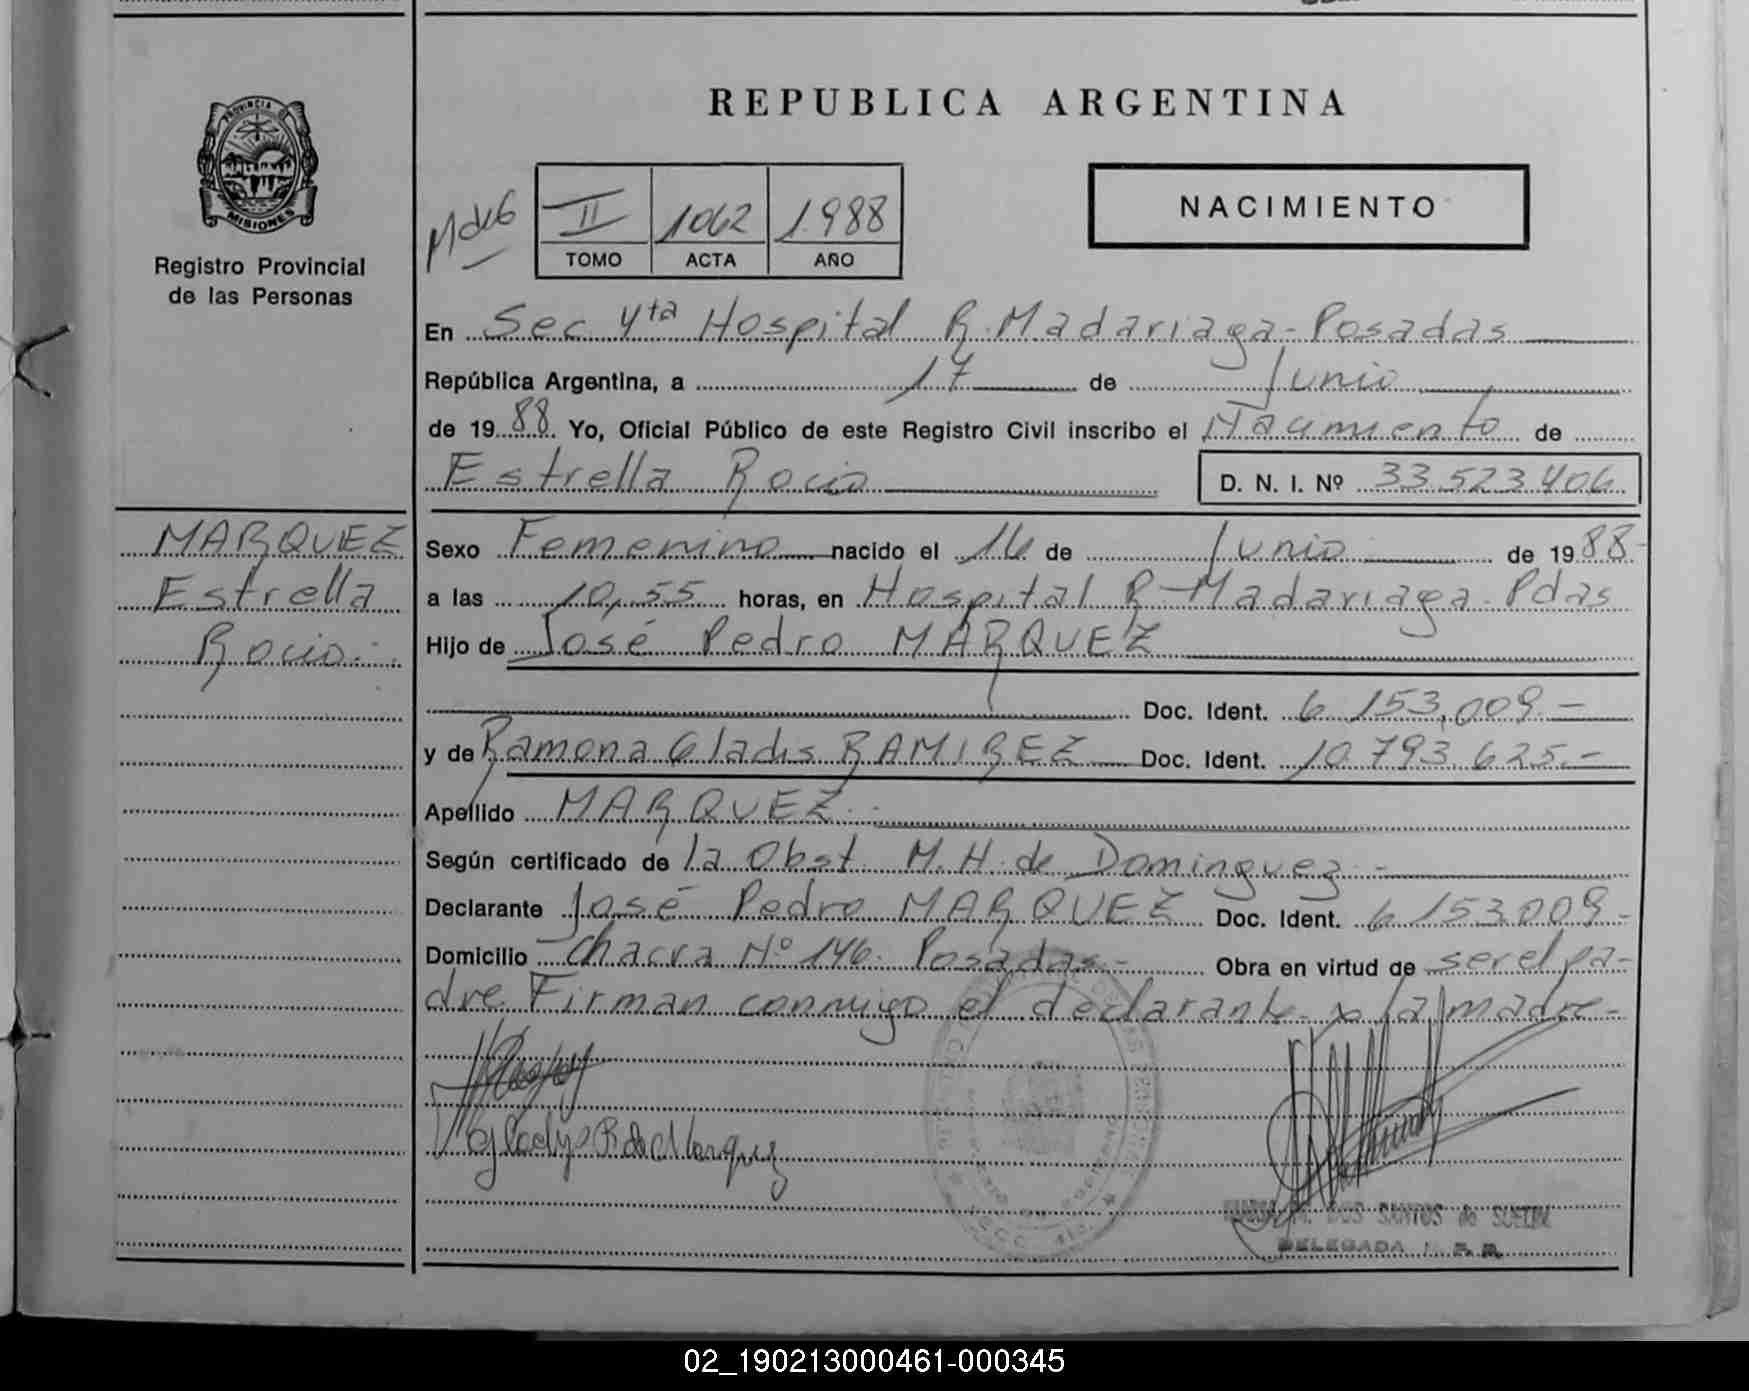 REPUBLICA ARGENTINA
PROVINCIA DE
MISIONES
Registro Provincial
de las Personas
II 1062 1.988
TOMO ACTA AÑO
NACIMIENTO
En Sec 4ta Hospital R. Madariaga - Posadas
República Argentina, a 17 de Junio
de 1988 Yo, Oficial Público de este Registro Civil inscribo el Nacimiento de
Estrella Rocio D. N. I. Nº 33.523.406
MARQUEZ
Estrella
Rocio.-
Sexo Femenino nacido el 16 de Junio de 1988-
a las 10,55 horas, en Hospital R-Madariaga-Pdas
Hijo de José Pedro MARQUEZ
Doc. Ident. 6.153,009.-
y de Ramona Gladis RAMIREZ Doc. Ident. 10.793.625.-
Apellido MARQUEZ.-
Según certificado de la Obst M.H. de Dominguez.-
Declarante José Pedro MARQUEZ Doc. Ident. 6.153.009-
Domicilio Chacra Nº 146. Posadas.- Obra en virtud de ser el pa-
dre. Firman conmigo el declarante y la madre-
Gladys R de Marquez
DOS SANTOS de
DELEGADA
02_190213000461-000345